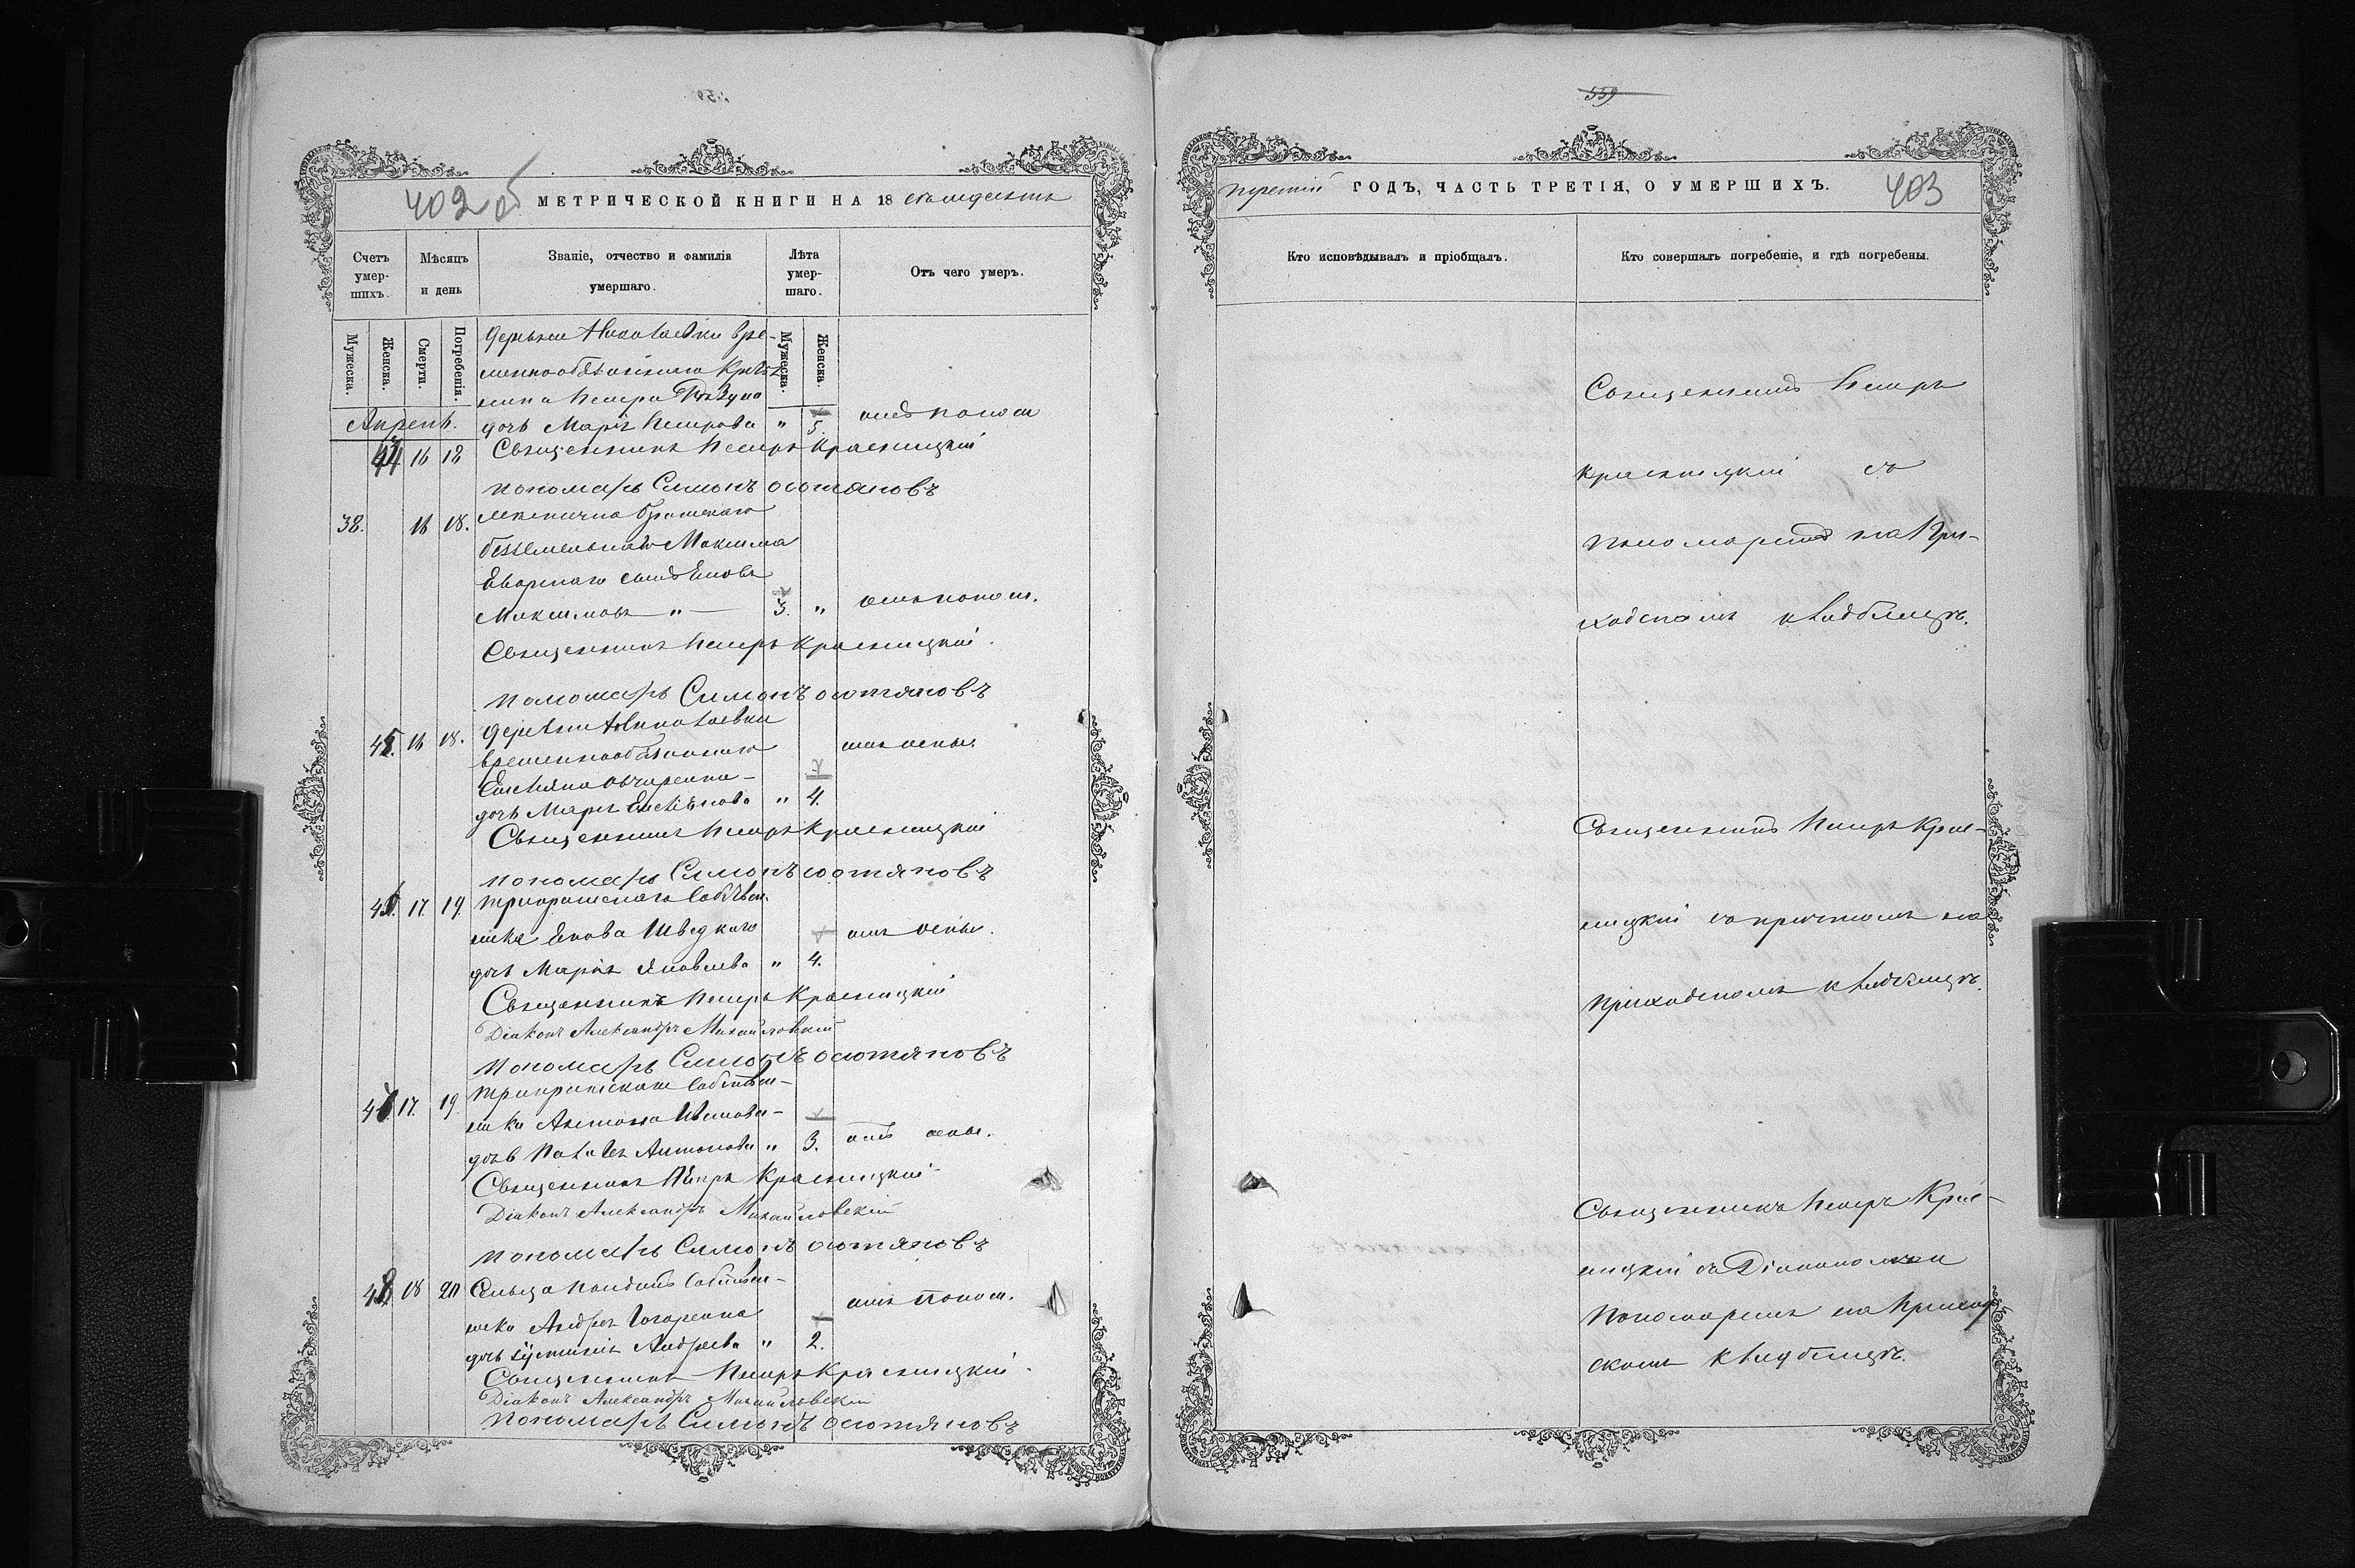 402 об
МЕТРИЧЕСКОЙ КНИГИ НА 18 семидесятъ
Счетъ умер-шихъ.
Мѣсяцъ и день
Званіе, отчество и фамилія умершаго.
Лѣта умер-шаго.
Отъ чего умеръ.
Мужеска.
Женска.
Смерти.
Погребенія.
Мужеска.
Женска.
деревни Николаевки вре-
меннообязаннаго Кресть
янина Петра
Апрель.
дочь Марія Петрова " 5. отъ понос
44 16 18 Священникъ Петръ Красницкій
пономарь Симонъ Остяновъ
38. 16 18. мѣщанина
безземельнаго Максима
сынъ Яковъ
Максимовъ " 3. " отъ понос.
Священникъ Петръ Красницкій.
пономарь Симонъ Остяновъ
45. 16 18. деревни Николаевки
временнообязаннаго отъ оспы.
Овчаренка
дочь Марія " 4.
Священникъ Петръ Красницкій
пономарь Симонъ Остяновъ
46. 17. 19. собствен.
ника Якова Шведкаго отъ оспы.
дочь Марія Яковлева " 4.
Священникъ Петръ Красницкій
Діаконъ Александръ Михайловскій
пономарь Симонъ Остяновъ
47 17. 19. собствен-
ника Антона
дочь Антонова " 3. отъ оспы.
Священникъ Петръ Красницкій
Діаконъ Александръ Михайловскій
пономарь Симонъ Остяновъ
48. 18 20 Сельца собствен-
ника Андрея отъ понос.
дочь Іустинія Андреева " 2.
Священникъ Петръ Красницкій.
Діаконъ Александръ Михайловскій
пономарь Симонъ Остяновъ
559
третій ГОДЪ, ЧАСТЬ ТРЕТІЯ, О УМЕРШИХЪ. 403
Кто исповѣдывалъ и пріобщалъ.
Кто совершалъ погребеніе, и гдѣ погребены.
Священникъ Петръ
Красницкій съ
пономаремъ на При-
ходскомъ кладбищѣ.
Священникъ Петръ Крас-
ницкій съ причтомъ на
Приходскомъ кладбищѣ.
Священникъ Петръ Крас-
ницкій съ Діакономъ и
Пономаремъ на Приход
скомъ кладбищѣ.